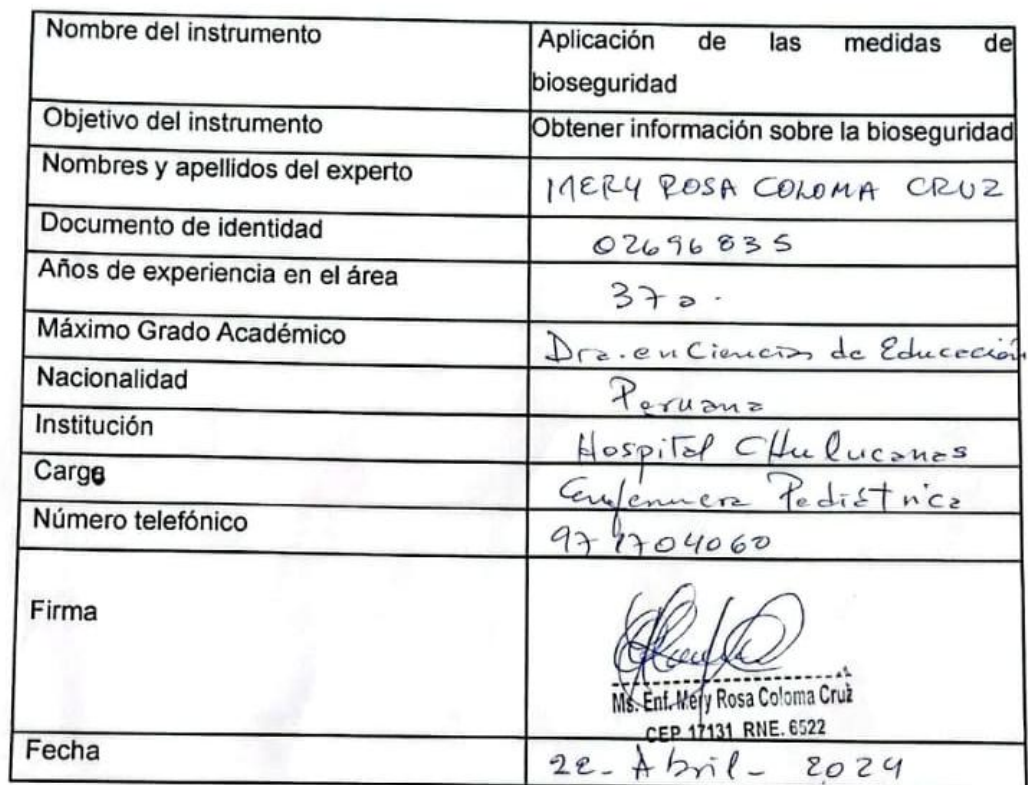 Nombre del instrumento
Aplicación de las medidas de
bioseguridad
Objetivo del instrumento
Obtener información sobre la bioseguridad
Nombres y apellidos del experto
MERY ROSA COLOMA CRUZ
Documento de identidad
02696835
Años de experiencia en el área
37a.
Máximo Grado Académico
Dra. en Ciencias de Educación
Nacionalidad
Peruana
Institución
Hospital CHulucanas
Cargo
Enfermera Pediátrica
Número telefónico
971704060
Firma
Ms. Enf. Mery Rosa Coloma Cruz
CEP 17131 RNE. 6522
Fecha
22- Abril- 2024